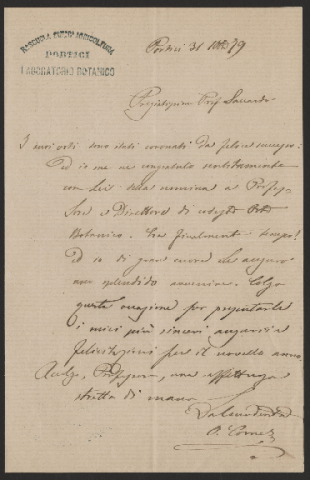 R. SCUOLA SUPER. AGRICOLTURA
PORTICI
LABORATORIO BOTANICO
Portici 31 Xbre 79
Pregiatissimo Prof. Saccardo
I suoi voti sono stati coronati da felice successo:
ed io me ne congratulo sentitamente
con Lei della nomina a Profes-
sore e Direttore di codesto Orto
Botanico. Era finalmente tempo!
Ed io di gran cuore Le auguro
uno splendido avvenire. Colgo
questa occasione per presentarle
i miei più sinceri auguri e
felicitazioni per il novello anno.
Accolga, Professore, una affettuosa
stretta di mano
O. Comes